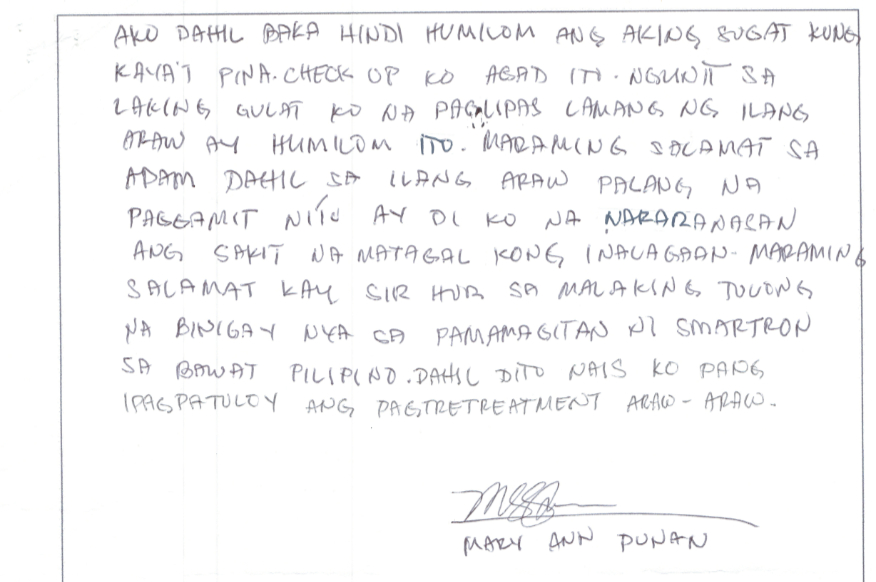 AKO DAHIL BAKA HINDI HUMILOM ANG AKING SUGAT KUNG
KAYA'T PINA.CHECK OP KO AGAD ITI. NGUNIT SA
LAKING GULAT KO NA PAGLIPAS LAMANG NG ILANG
ARAW AY HUMILOM ITO. MARAMING SALAMAT SA
ADAM DAHIL SA ILANG ARAW PALANG NA
PAGGAMIT NITO AY DI KO NA NARARANASAN
ANG SAKIT NA MATAGAL KONG INALAGAAN- MARAMING
SALAMAT KAY SIR HUR SA MALAKING TULONG
NA BINIGAY NYA SA PAMAMAGITAN NI SMARTRON
SA BAWAT PILIPINO. DAHIL DITO NAIS KO PANG
IPAGPATULOY ANG PAGTRETREATMENT ARAW-ARAW.
MARY ANN PUNAN